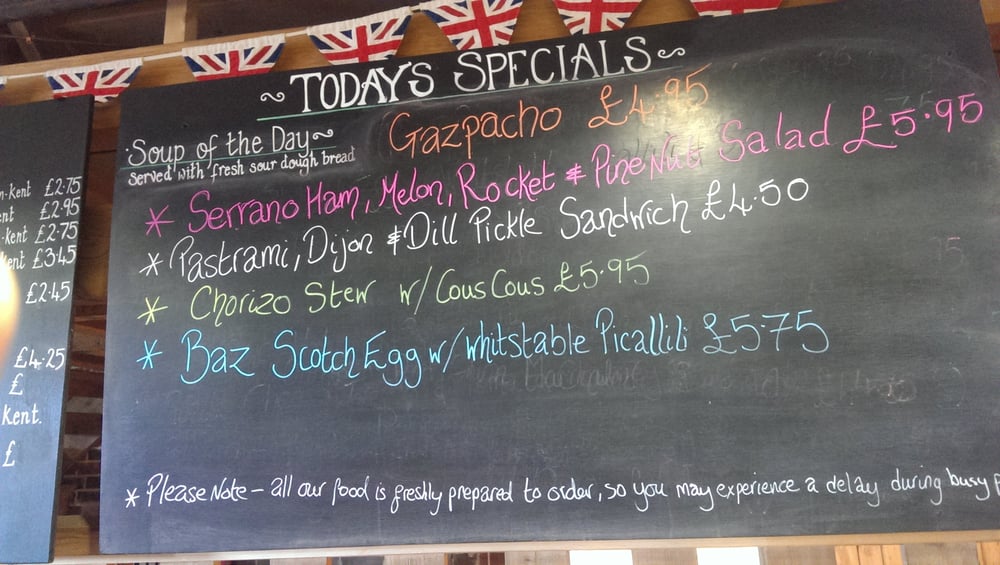 ~ TODAY'S SPECIALS ~
Soup of the Day~ Gazpacho £4.95
Served with fresh sour dough bread
* Serrano Ham, Melon, Rocket & Pine Nut Salad £5.95
* Pastrami, Dijon & Dill Pickle Sandwich £4.50
* Chorizo Stew w/ Cous Cous £5.95
* Baz Scotch Egg w/ Whitstable Picallili £5.75
* Please Note - all our food is freshly prepared to order, so you may experience a delay during busy
kent £2.75
£2.95
kent £2.75
£3.45
£2.45
£4.25
£
Kent.
£